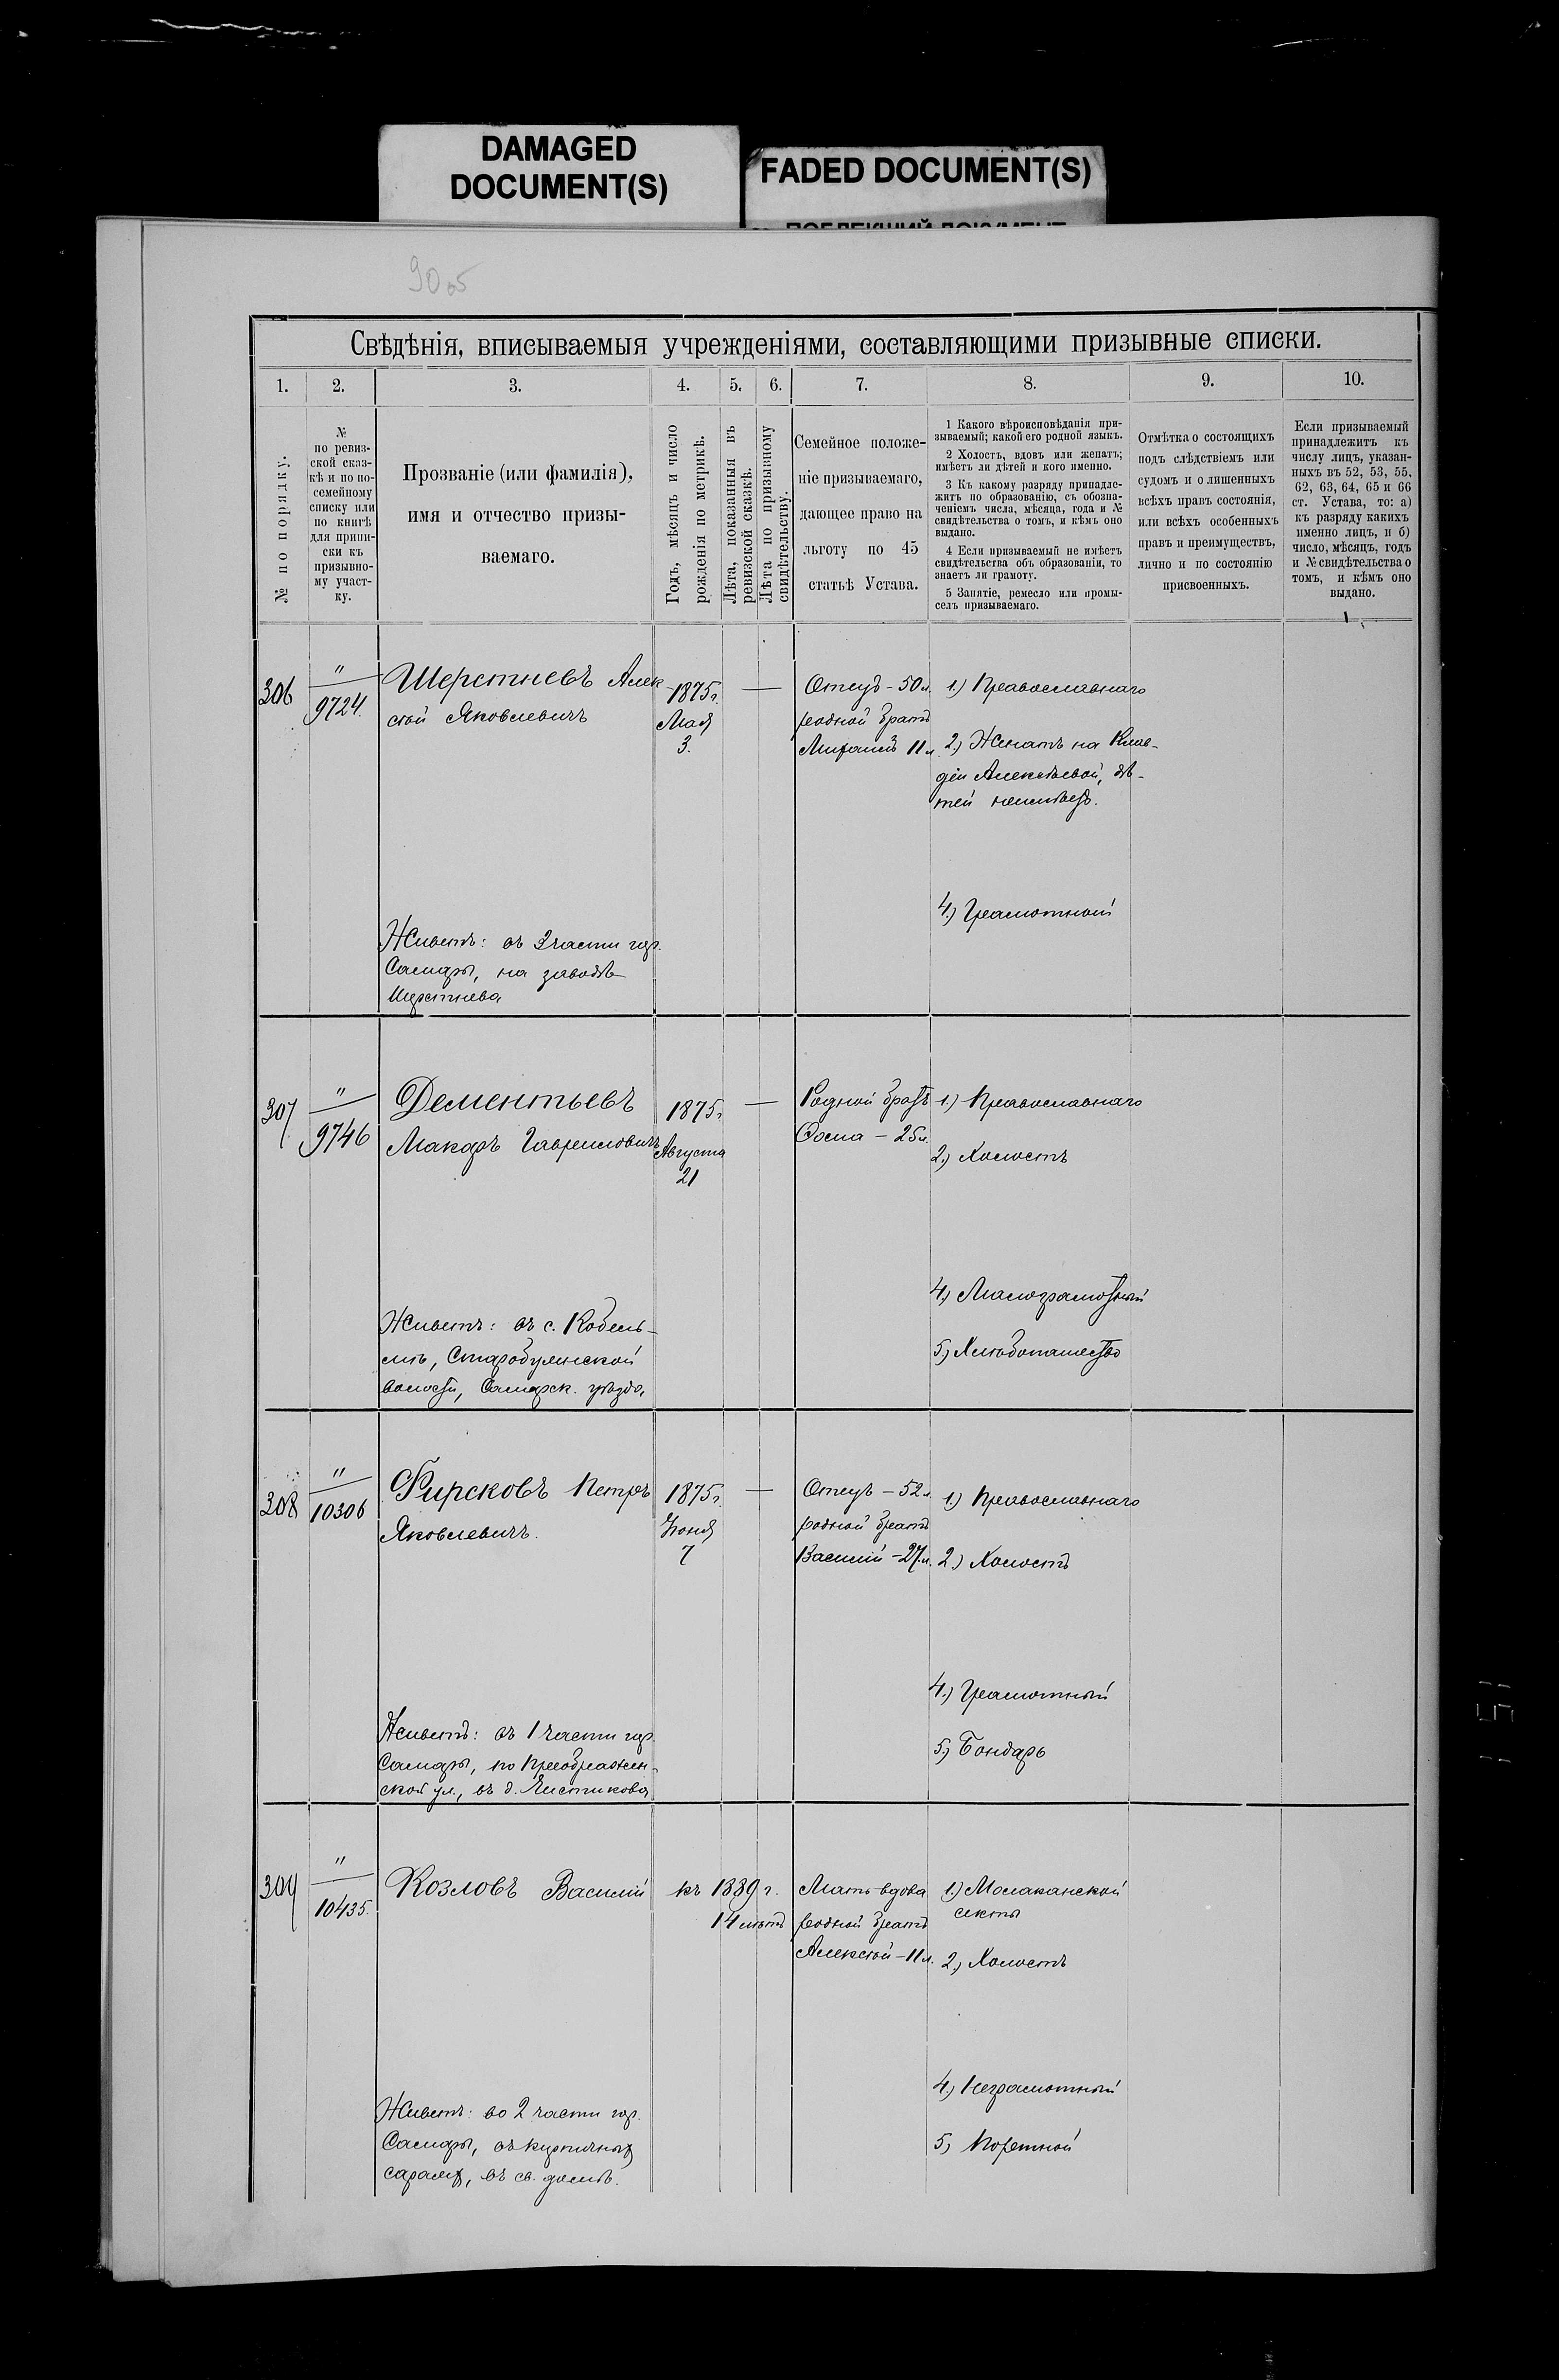 DAMAGED
DOCUMENT(S)
FADED DOCUMENT(S)
Свѣдѣнія, вписываемыя учрежденіями, составляющими призывные списки.
1. 2. 3. 4. 5. 6. 7. 8. 9. 10.
№ по порядку.
№
по ревиз-
ской сказ-
кѣ и по по-
семейному
списку или
по книгѣ
для припи-
ски къ
призывно-
му участ-
ку.
Прозваніе (или фамилія),
имя и отчество призы-
ваемаго.
Годъ, мѣсяцъ и число
рожденія по метрикѣ.
Лѣта, показанныя въ
ревизской сказкѣ.
Лѣта по призывному
свидѣтельству.
Семейное положе-
ніе призываемаго,
дающее право на
льготу по 45
статьѣ Устава.
1 Какого вѣроисповѣданія при-
зываемый; какой его родной языкъ.
2 Холостъ, вдовъ или женатъ;
имѣетъ ли дѣтей и кого именно.
3 Къ какому разряду принадле-
житъ по образованію, съ обозна-
ченіемъ числа, мѣсяца, года и №
свидѣтельства о томъ, и кѣмъ оно
выдано.
4 Если призываемый не имѣетъ
свидѣтельства объ образованіи, то
знаетъ ли грамоту.
5 Занятіе, ремесло или промы-
селъ призываемаго.
Отмѣтка о состоящихъ
подъ слѣдствіемъ или
судомъ и о лишенныхъ
всѣхъ правъ состоянія,
или всѣхъ особенныхъ
правъ и преимуществъ,
лично и по состоянію
присвоенныхъ.
Если призываемый
принадлежитъ къ
числу лицъ, указан-
ныхъ въ 52, 53, 55,
62, 63, 64, 65 и 66
ст. Устава, то: а)
къ разряду какихъ
именно лицъ, и б)
число, мѣсяцъ, годъ
и № свидѣтельства о
томъ, и кѣмъ оно
выдано.
306
"
9724.
Шерстневъ Алек
сѣй Яковлевичъ
Живетъ: въ 2 части гор.
Самары, на заводѣ
Шерстнева
1875 г.
Мая
3.
—
Отецъ - 50 л.
родной братъ
11 л.
1.) Православнаго
2.) Женатъ на Клав-
діи Алексѣевой, дѣ-
тей неимѣетъ.
4.) Грамотный
307
"
9746
Дементьевъ
Макаръ Гавриловичъ
Живетъ: въ с. Кобель-
мѣ, Старобуянской
волости, Самарск. уѣзда,
1875 г.
Августа
21
—
Родной братъ
Ѳома - 25 л.
1.) Православнаго
2.) Холостъ
4.) Малограмотный
5.) Хлѣбопашество
308
"
10306
Фирсковъ Петръ
Яковлевичъ.
Живетъ: въ 1 части гор.
Самары, по Преображен-
ской ул., въ д.
1875 г.
Іюня
7
—
Отецъ - 52 л.
родной братъ
Василій - 27 л.
1.) Православнаго
2.) Холостъ
4.) Грамотный
5.) Бондарь
309
"
10435.
Козловъ Василій
Живетъ: во 2 части гор.
Самары, въ кирпичныхъ
сараяхъ, въ св. домѣ.
къ 1889 г.
14 лѣтъ
Мать вдова
родной братъ
Алексѣй - 11 л.
1.) Молаканской
секты
2.) Холостъ
4.) Неграмотный
5) Портной